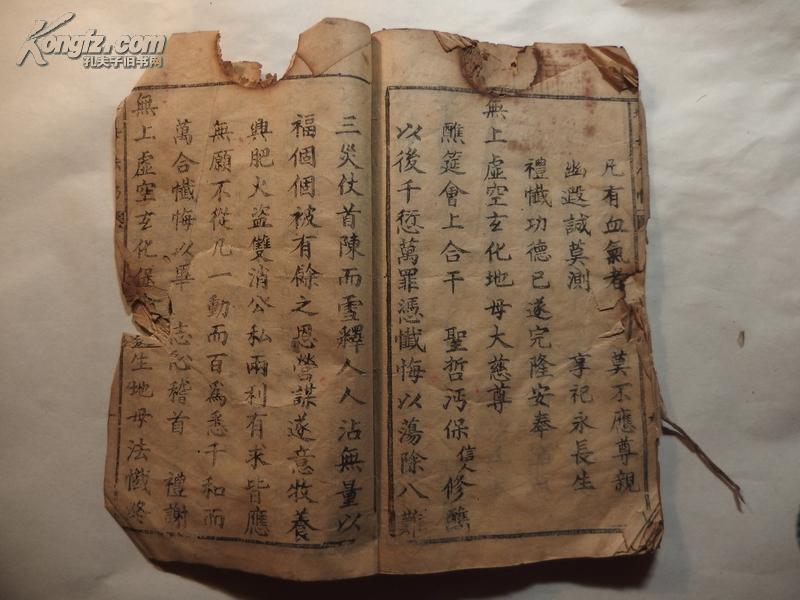 Kongfz.com
孔夫子旧书网
凡有血氣者 莫不應尊親
幽遐誠莫測 享祀永長生
禮懺功德已遂完隆安奉
無上虛空玄化地母大慈尊
醮筵會上合干 聖哲沔保信人修醮
以後千愆萬罪憑懺悔以蕩除八難
三災仗首陳而雪釋人人沾無量以
福個個被有餘之恩營謀遂意牧養
興肥火盜雙消公私兩利有求皆應
無願不從凡一動而百為悉千和而
萬合懺悔以畢 志念稽首 禮謝
無上虛空玄化保 生地母法懺終